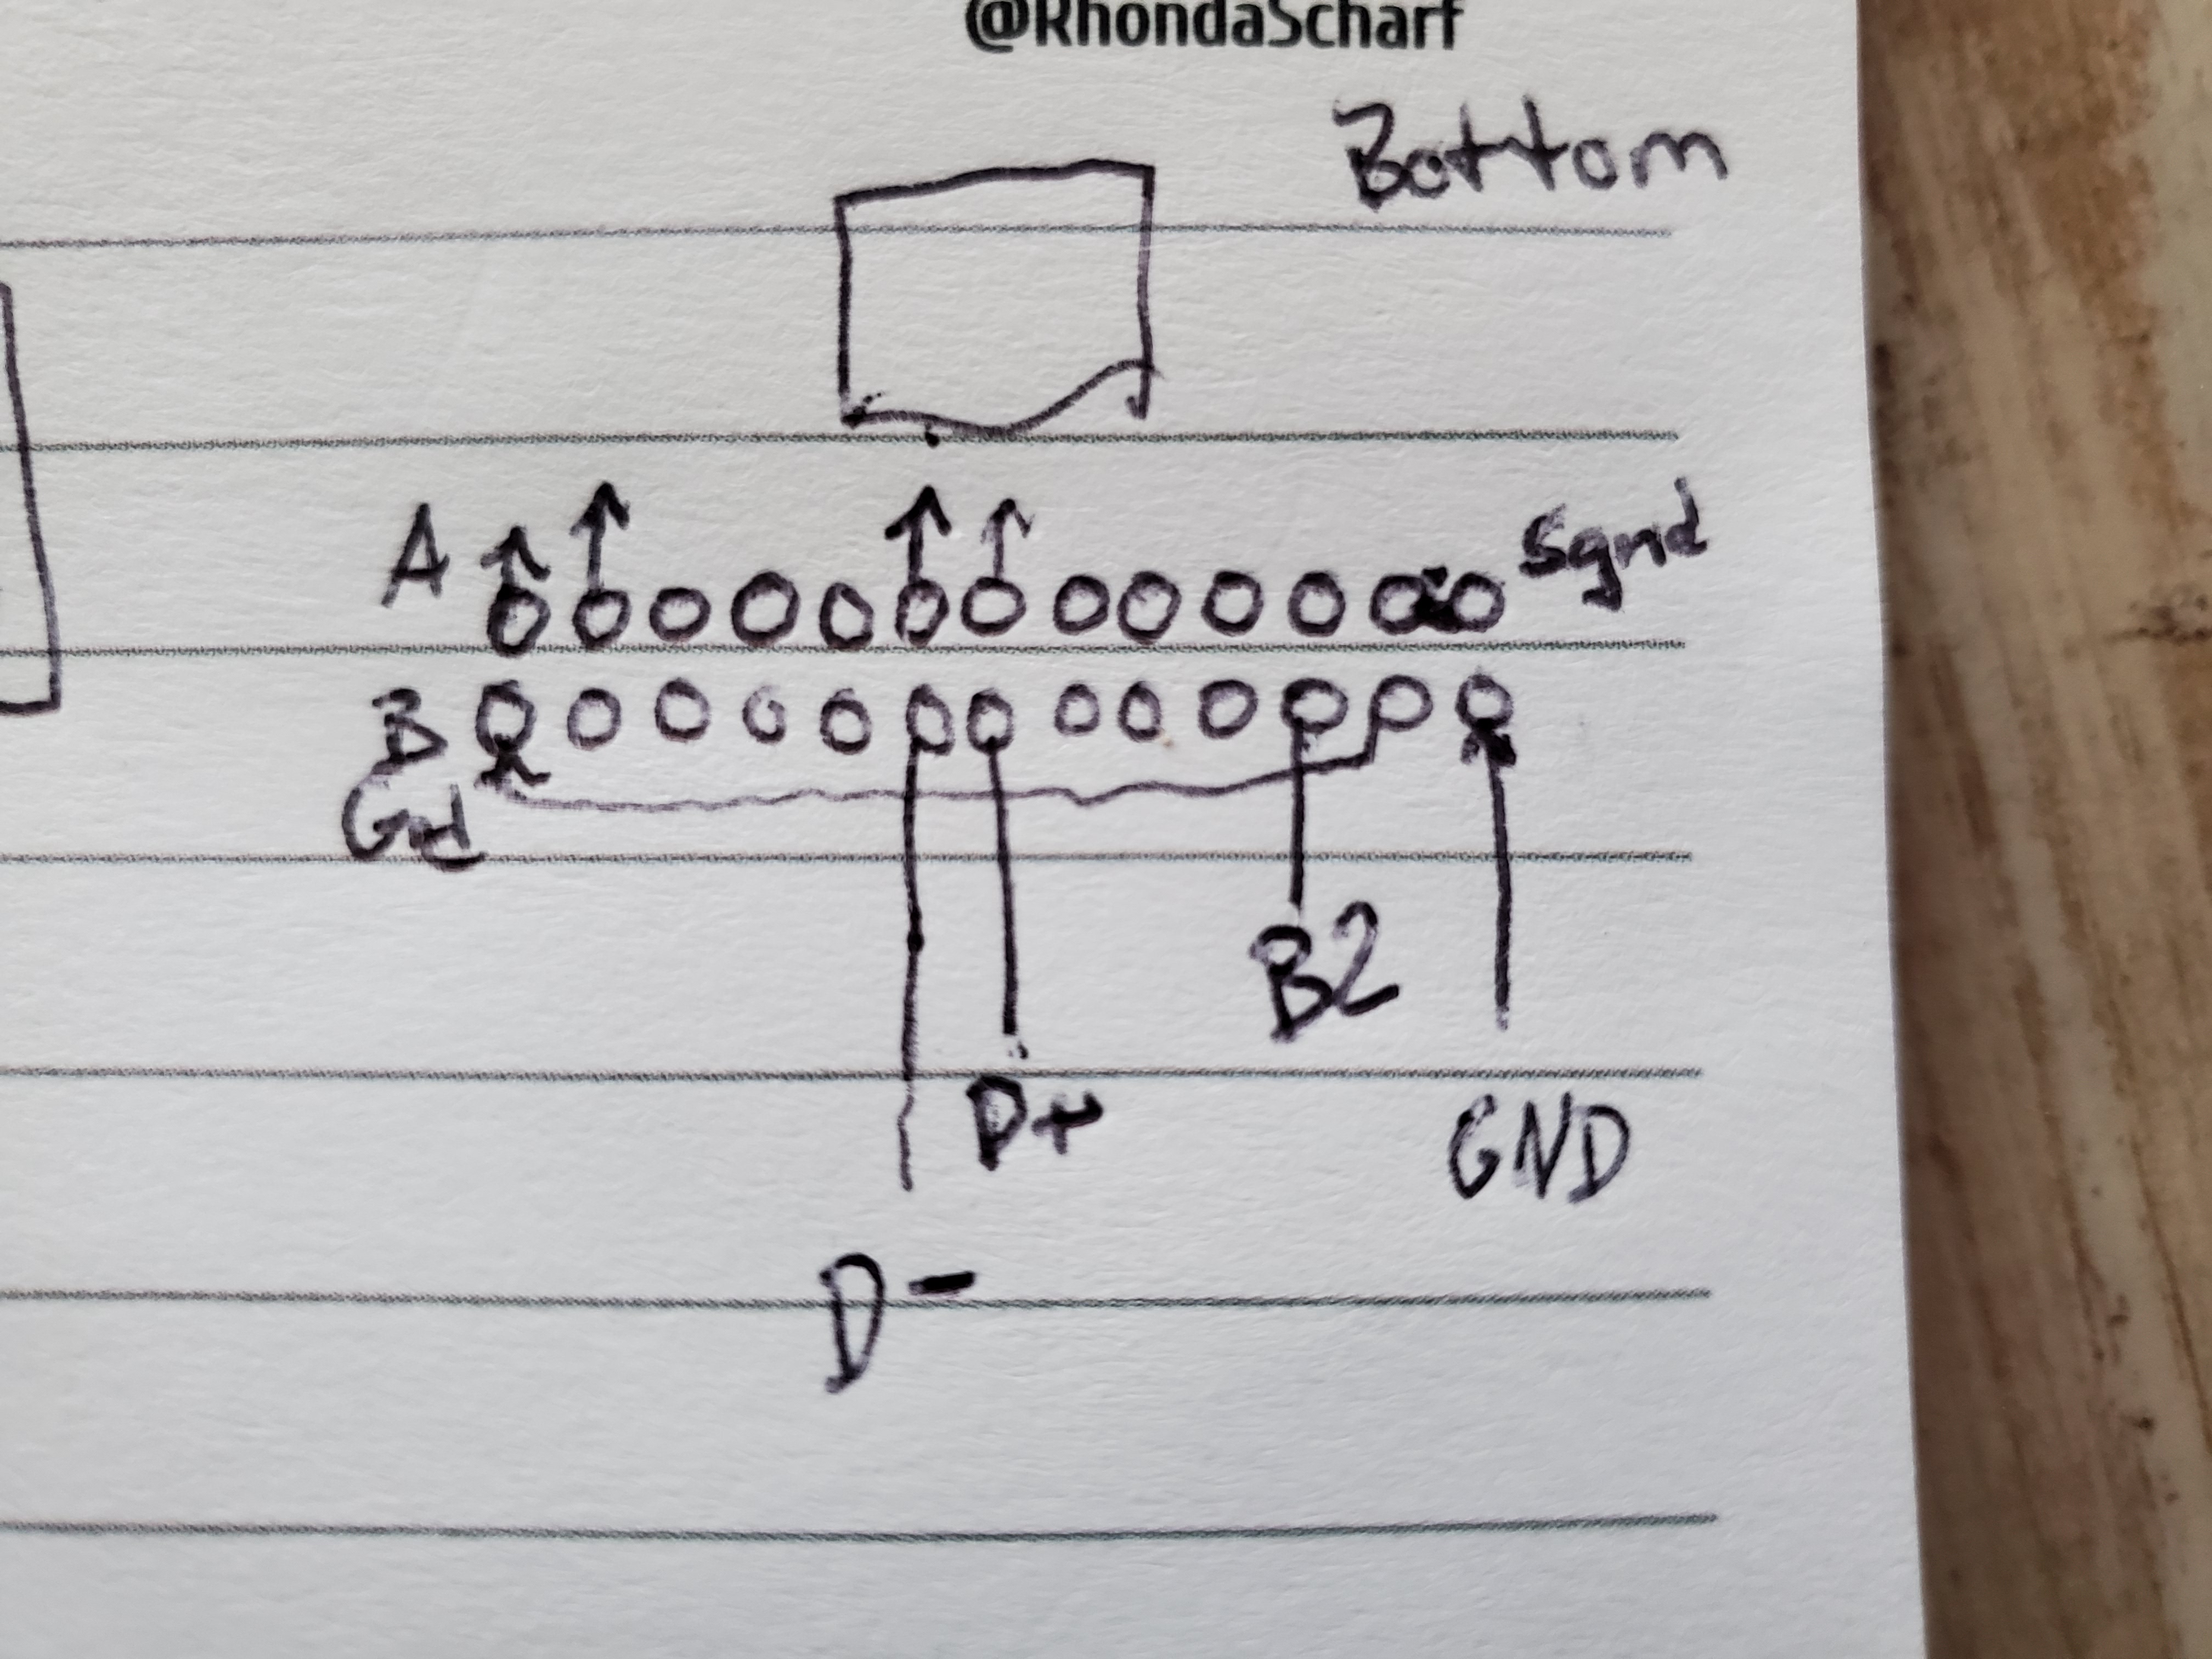 @RhondaScharf
Bottom
A
Sgnd
B
Gnd
B2
D+
GND
D-